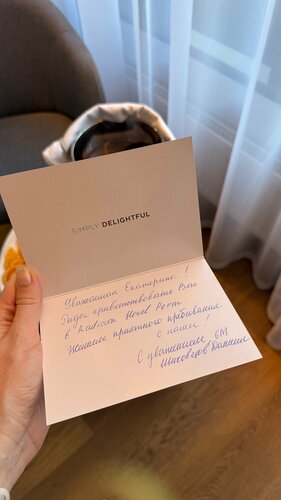 SIMPLY DELIGHTFUL
Уважаемая Екатерина!
Рады приветствовать Вас
в Radisson Hotel Perm
Желаем приятного пребывания
с нами!
С уважением, GM
Шиховцов Даниил